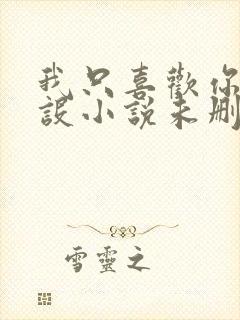 我只喜歡你
設小說未刪
雪靈之